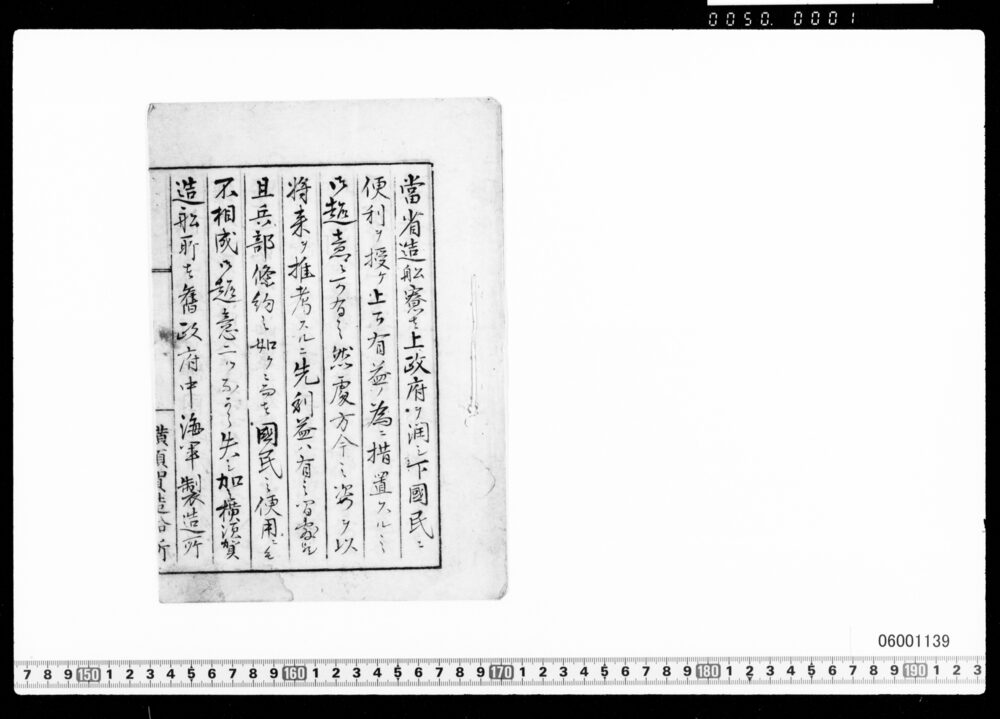 0050. 0001
當省造船寮ハ上政府ヲ潤シ下國民ニ
便利ヲ授ケ上下有益ノ為ニ措置スルノ
御趣意ニ可有之然處方今之姿ヲ以
将来ヲ推考スルニ先利益ハ有之
且兵部條約之如クニ而ハ國民之便用ニ
不相成御趣意ニ失シ加之横須賀
造船所ハ舊政府中海軍製造所
横須賀造船所
06001139
7 8 9 150 1 2 3 4 5 6 7 8 9 160 1 2 3 4 5 6 7 8 9 170 1 2 3 4 5 6 7 8 9 180 1 2 3 4 5 6 7 8 9 190 1 2 3